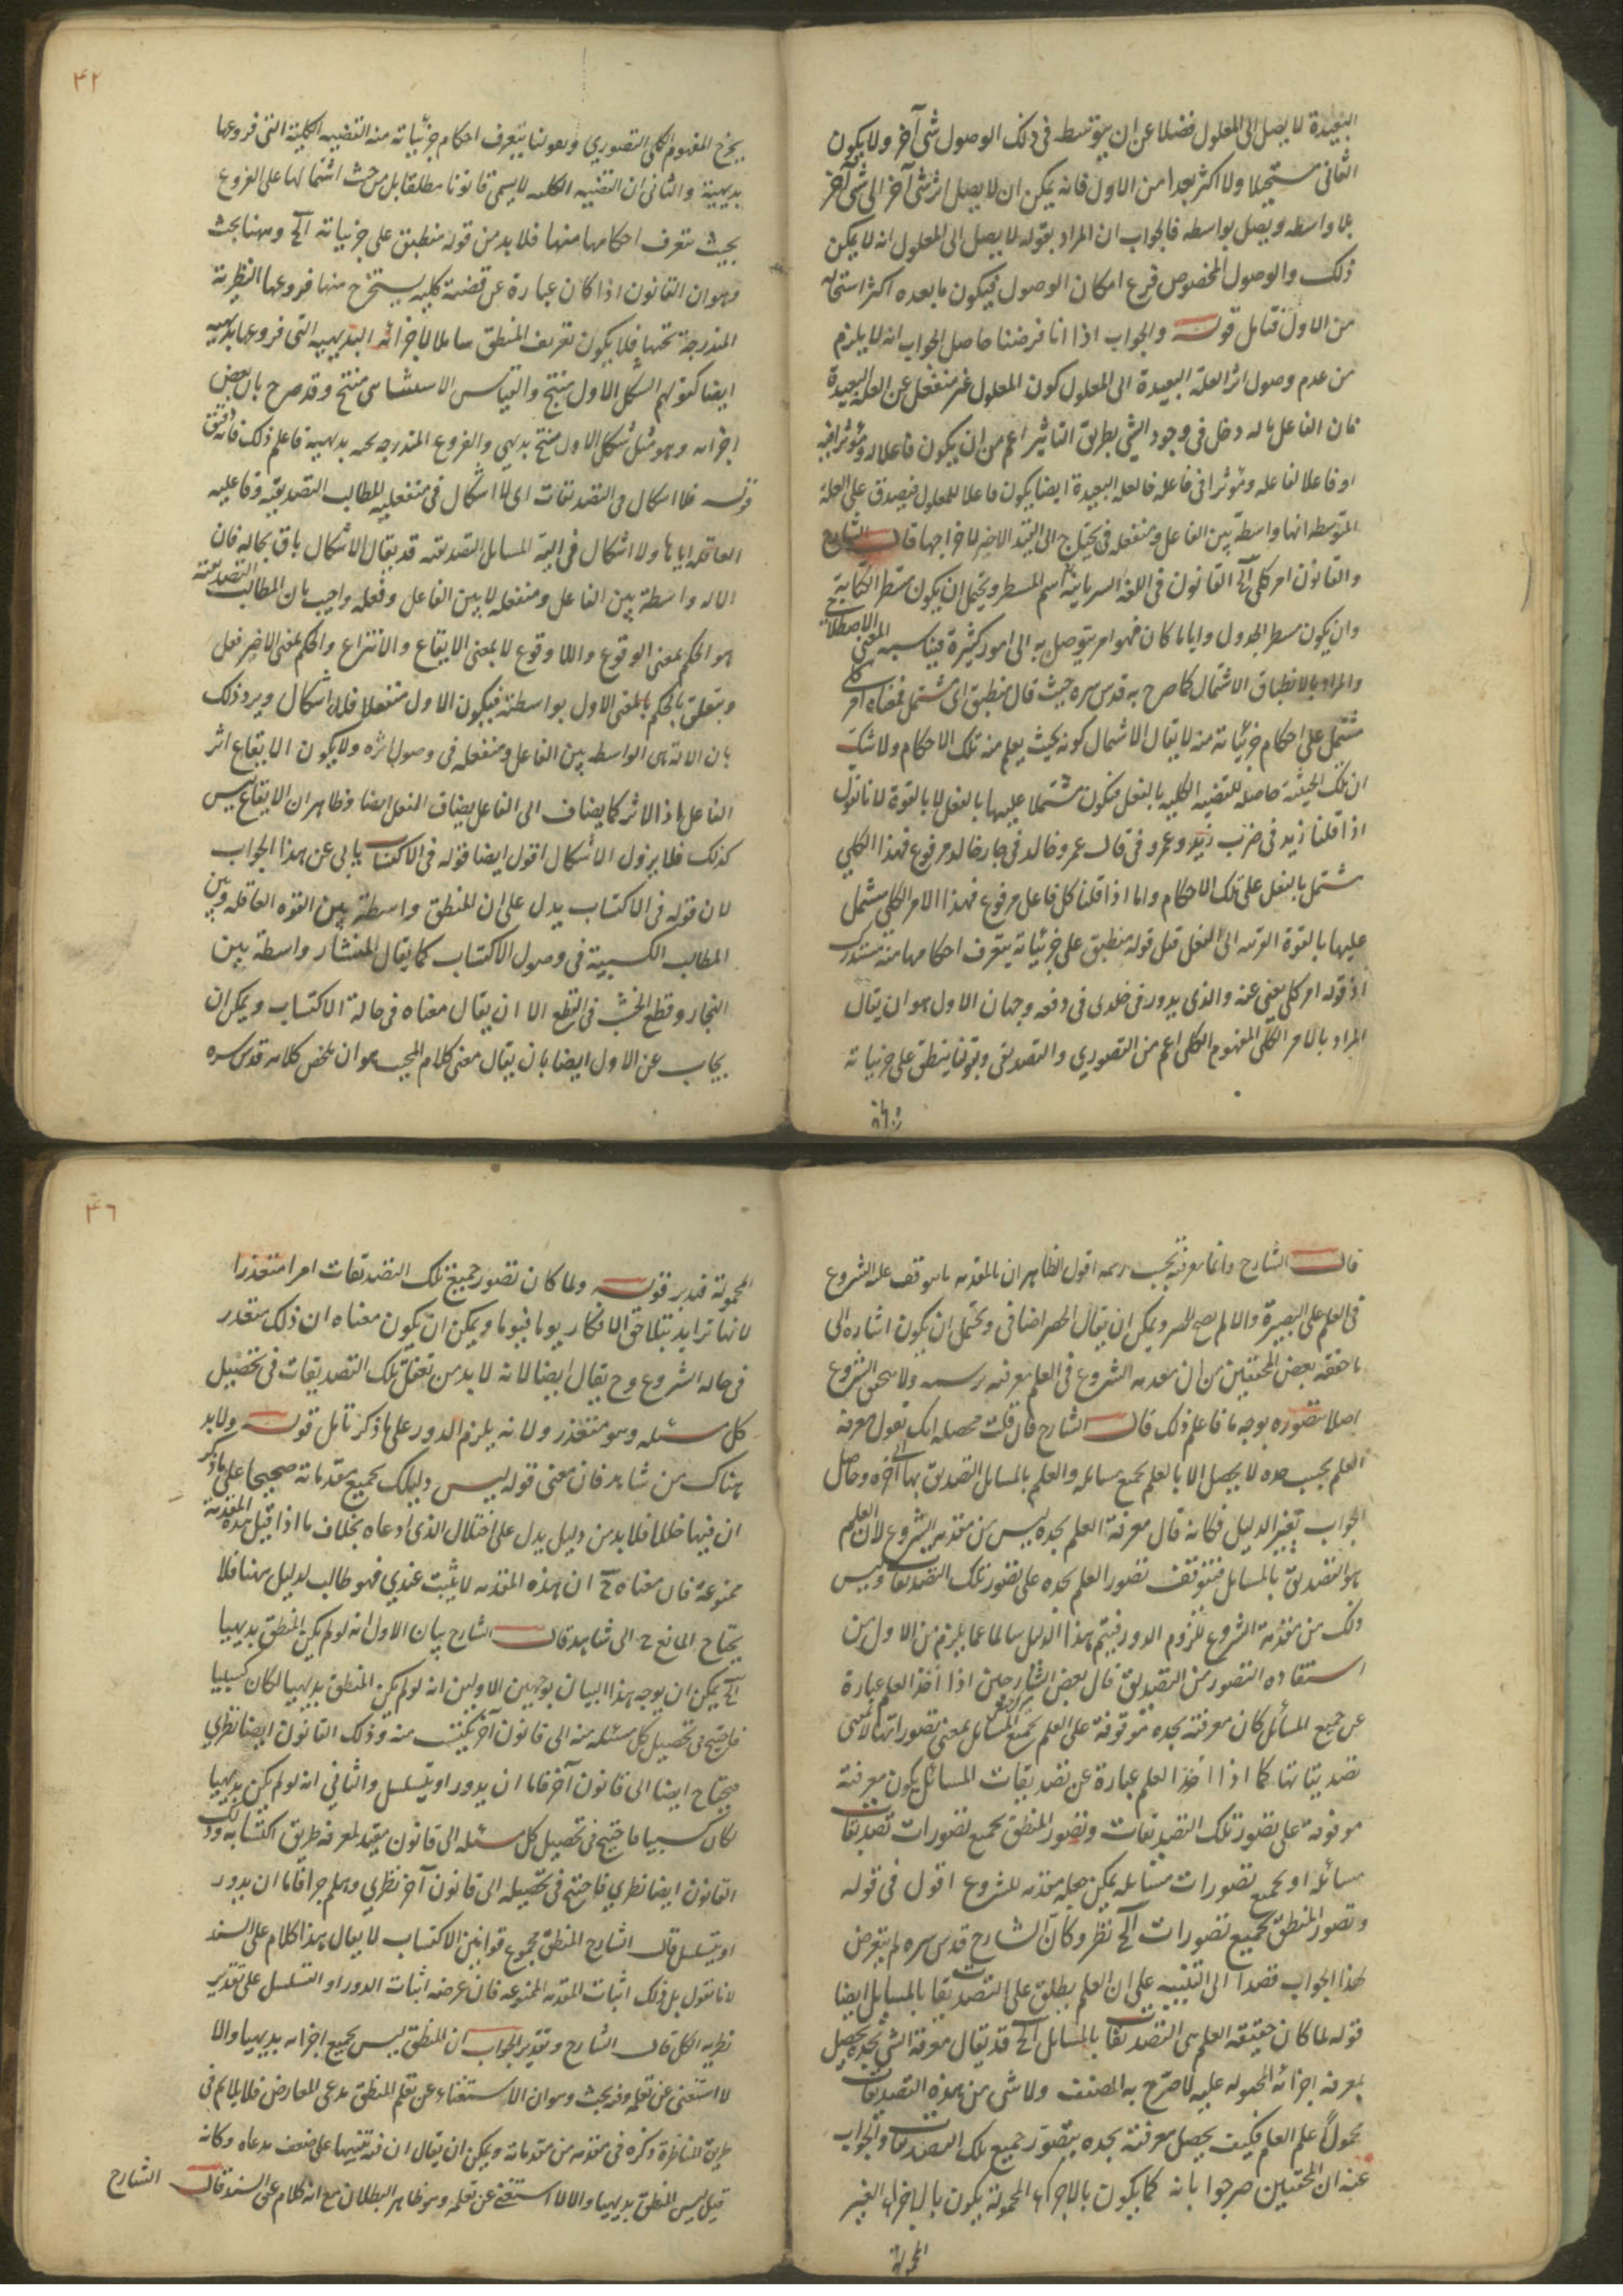 البعيدة لا يصل الى المعلول فضلا عن ان يتوسط فى ذلك الوصول شئ آخر ولا يكون
الثانى مستحيلا ولا اكثر بعدا من الاول فانه يمكن ان لا يصل اثر شئ آخر الى شئ آخر
بلا واسطه ويصل بواسطه فالجواب ان المراد بقوله لا يصل الى المعلول انه لا يمكن
ذلك والوصول المخصوص فرع امكان الوصول فيكون ما بعده اكثر استحالة
من الاول فتامل قوله والجواب اذا انا فرضنا حاصل الجواب انه لا يلزم
من عدم وصول اثر العلة البعيدة الى المعلول كون المعلول غير منفعل عن العلة البعيدة
فان الفاعل ما له دخل فى وجود الشئ بطريق التاثير اعم من ان يكون فاعلا له ومؤثرا فيه
او فاعلا لفاعله ومؤثرا فى فاعله فالعله البعيدة ايضا يكون فاعلا للمعلول فيصدق على العلة
المتوسطه انها واسطة بين الفاعل ومنفعله فيحتاج الى القيد الاخير لاخراجها قال الشارح
والقانون امر كلى آلخ القانون فى اللغة السريانية اسم المسطر ويحتمل ان يكون مسطر الكتابة
وان يكون مسطر الجدول وايا ما كان فهو امر يتوصل به الى امور كثيرة فيناسب المعنى الاصطلاحى
والمراد بالانطباق الاشتمال كما صرح به قدس سره حيث قال منطبق اى مشتمل فمعناه امر كلى
مشتمل على احكام جزئياته منه لا يقال الاشتمال كونه بحيث يعلم منه تلك الاحكام ولا شك
ان تلك الحيثية حاصله للقضيه الكليه بالفعل فتكون مشتملا عليها بالفعل لا بالقوة لانا نقول
اذا قلنا زيد فى ضرب زيد وعمرو فى قال عمرو وخالد فى جاء خالد مرفوع فهذا الكلى
مشتمل بالفعل على تلك الاحكام واما اذا قلنا كل فاعل مرفوع فهذا الامر الكلى مشتمل
عليها بالقوة القريبه الى الفعل قيل قوله منطبق على جزئياته يتعرف احكامها منه مستدرك
اذ قوله امر كلى يغنى عنه والذى يدور فى خلدى فى دفعه وجهان الاول هو ان يقال
المراد بالامر الكلى المفهوم الكلى اعم من التصورى والتصديقى وبقولنا ينطبق على جزئياته
٤٢
يخرج المفهوم الكلى التصورى وبقولنا يتعرف احكام جزئياته منه القضيه الكلية التى فروعها
بديهية والثانى ان القضيه الكليه لا يسمى قانونا مطلقا بل من حيث اشتمالها على الفروع
بحيث يتعرف احكامها منها فلا بد من قوله منطبق على جزئياته آلخ وههنا بحث
وهو ان القانون اذا كان عبارة عن قضية كليه يستخرج منها فروعها النظرية
المندرجة تحتها فلا يكون تعريف المنطق شاملا لاجزائه البديهيه التى فروعها بديهيه
ايضا كقولهم الشكل الاول منتج والقياس الاستثنائى منتج وقد صرح بان بعض
اجزائه وهو مثل شكل الاول منتج بديهى والفروع المندرجه تحته بديهية فاعلم ذلك فانه دقيق
قوله فلا اشكال فى التصديقات اى لا اشكال فى منفعليه للمطالب التصديقيه وفاعليه
العاقله اياها ولا اشكال فى آلية المسايل التصديقيه قد يقال الاشكال باق بحاله فان
الاله واسطة بين الفاعل ومنفعله لا بين الفاعل وفعله واجيب بان المطالب التصديقية
هو الحكم بمعنى الوقوع واللا وقوع لا بمعنى الايقاع والانتزاع والحكم لمعنى الاخير فعل
ويتعلق بالحكم بالمعنى الاول بواسطته فيكون الاول منفعلا فلا اشكال ويرد ذلك
بان الالة هى الواسطه بين الفاعل ومنفعله فى وصول اثره ولا يكون الايقاع اثر
الفاعل اذ الاثر كما يضاف الى الفاعل يضاف المنفعل ايضا وظاهر ان الايقاع ليس
كذلك فلا يزول الاشكال اقول ايضا قوله فى الاكتساب يابى عن هذا الجواب
لان قوله فى الاكتساب يدل على ان المنطق واسطة بين القوه العاقله وبين
المطالب الكسبية فى وصول الاكتساب كما يقال المنشار واسطة بين
النجار وقطع الخشب فى القطع الا ان يقال معناه فى حالة الاكتساب ويمكن ان
يجاب عن الاول ايضا بان يقال معنى كلام المجيب هو ان ملخص كلامه قدس سره
قال الشارح وانما معرفته بحسب رسمه اقول الظاهر ان بالمقدمه ما يتوقف عليه الشروع
فى العلم على البصيرة والا لم يصح الحصر ويمكن ان يقال الحصر اضافى ويحتمل ان يكون اشاره الى
ما حققه بعض المحققين من ان مقدمه الشروع فى العلم معرفته برسمه ولا يتحقق الشروع
اصلا بتصوره بوجه ما فاعلم ذلك قال الشارح فان قلت محصله انك تقول معرفة
العلم بحسب حده لا يحصل الا بالعلم بجميع مسائله والعلم بالمسايل التصديق بها الى آخره وحاصل
الجواب تغيير الدليل فكانه قال معرفة العلم بحده ليس من مقدمه الشروع لان العلم
هو التصديق بالمسايل فتتوقف تصور العلم بحده على تصور تلك التصديقات وليس
ذلك من مقدمة الشروع للزوم الدور فيتم هذا الدليل سالما عما يلزم من الاول من
استفاده التصور من التصديق قال بعض الشارحين اذا اخذ العلم عبارة
عن جميع المسائل كان معرفته بحده موقوفة على العلم بجميع المسائل بمعنى تصوراتها لا بمعنى
تصديقاتها كما اذا اخذ العلم عبارة عن تصديقات المسائل يكون معرفته
موقوفة على تصور تلك التصديقات وتصور المنطق بجميع تصورات تصديقات
مسائله او بجميع تصورات مسائله يمكن جعله مقدمه للشروع اقول فى قوله
وتصور المنطق بجميع تصورات آلخ نظر وكان الشارح قدس سره لم يتعرض
لهذا الجواب قصدا الى التنبيه على ان العلم يطلق على التصديقات بالمسايل ايضا
قوله لما كان حقيقه العلم هى التصديقات بالمسايل آلخ قد يقال معرفة الشئ بحده يحصل
بمعرفه اجزائه المحموله عليه كما صرح به المصنف ولا شئ من هذه التصديقات
بمحمول على العلم فكيف يحصل معرفته بحده بتصور جميع تلك التصديقات والجواب
عنه ان المحققين صرحوا بانه كما يكون بالاجزاء المحمولة يكون بالاجزاء الغير
المحمولة
٤٦
المحمولة فتدبر قوله ولما كان تصور جميع تلك التصديقات امرا متعذرا
لانها تزايد بتلاحق الافكار يوما فيوما ويمكن ان يكون معناه ان ذلك متعذر
فى حاله الشروع وح يقال ايضا لانه لا بد من تعقل تلك التصديقات فى تحصيل
كل مسئله وهو متعذر ولانه يلزم الدور على ما ذكر تامل قوله ولا بد
هناك من شاهد فان معنى قوله ليس دليلك بجميع مقدماته صحيحا على ما ذكر
ان فيها خللا فلا بد من دليل يدل على اختلال الذى ادعاه بخلاف ما اذا قيل هذه المقدمة
ممنوعة فان معناه ح ان هذه المقدمه لا يثبت عندى فهو طالب لدليل ههنا فلا
يحتاج المانع ح الى شاهد قال الشارح بيان الاول انه لو لم يكن المنطق بديهيا
آلخ يمكن ان يوجه هذا البيان بوجهين الاولين انه لو لم يكن المنطق بديهيا لكان كسبيا
فاحتيج فى تحصيل كل مسئله منه الى قانون آخر يكتسب منه وذلك القانون ايضا نظرى
فيحتاج ايضا الى قانون آخر فاما ان يدور او يتسلسل والثانى انه لو لم يكن بديهيا
لكان كسبيا فاحتيج فى تحصيل كل مسئله الى قانون يفيد لمعرفه طريق اكتسابه وذلك
القانون ايضا نظرى فاحتيج فى تحصيله الى قانون آخر نظرى وهلم جرا فاما ان يدور
او يتسلسل قال الشارح المنطق مجموع قوانين الاكتساب لا يقال هذا كلام على السند
لانا نقول بل ذلك اثبات المقدمه الممنوعه فان غرضه اثبات الدور او التسلسل على تقدير
نظريه الكل قال الشارح وتقدير الجواب ان المنطق ليس بجميع اجزائه بديهيا والا
لاستغنى عن تعلمه وفيه بحث وهو ان الاستغناء عن تعلم المنطق مدعى المعارض فلا يلائم فى
طريق المناظرة ذكره فى مقدمه من مقدماته ويمكن ان يقال ان فيه تنبيها على ضعف مدعاه وكانه
قيل ليس المنطق بديهيا والا لاستغنى عن تعلمه وهو ظاهر البطلان مع انه كلام على السند قال الشارح